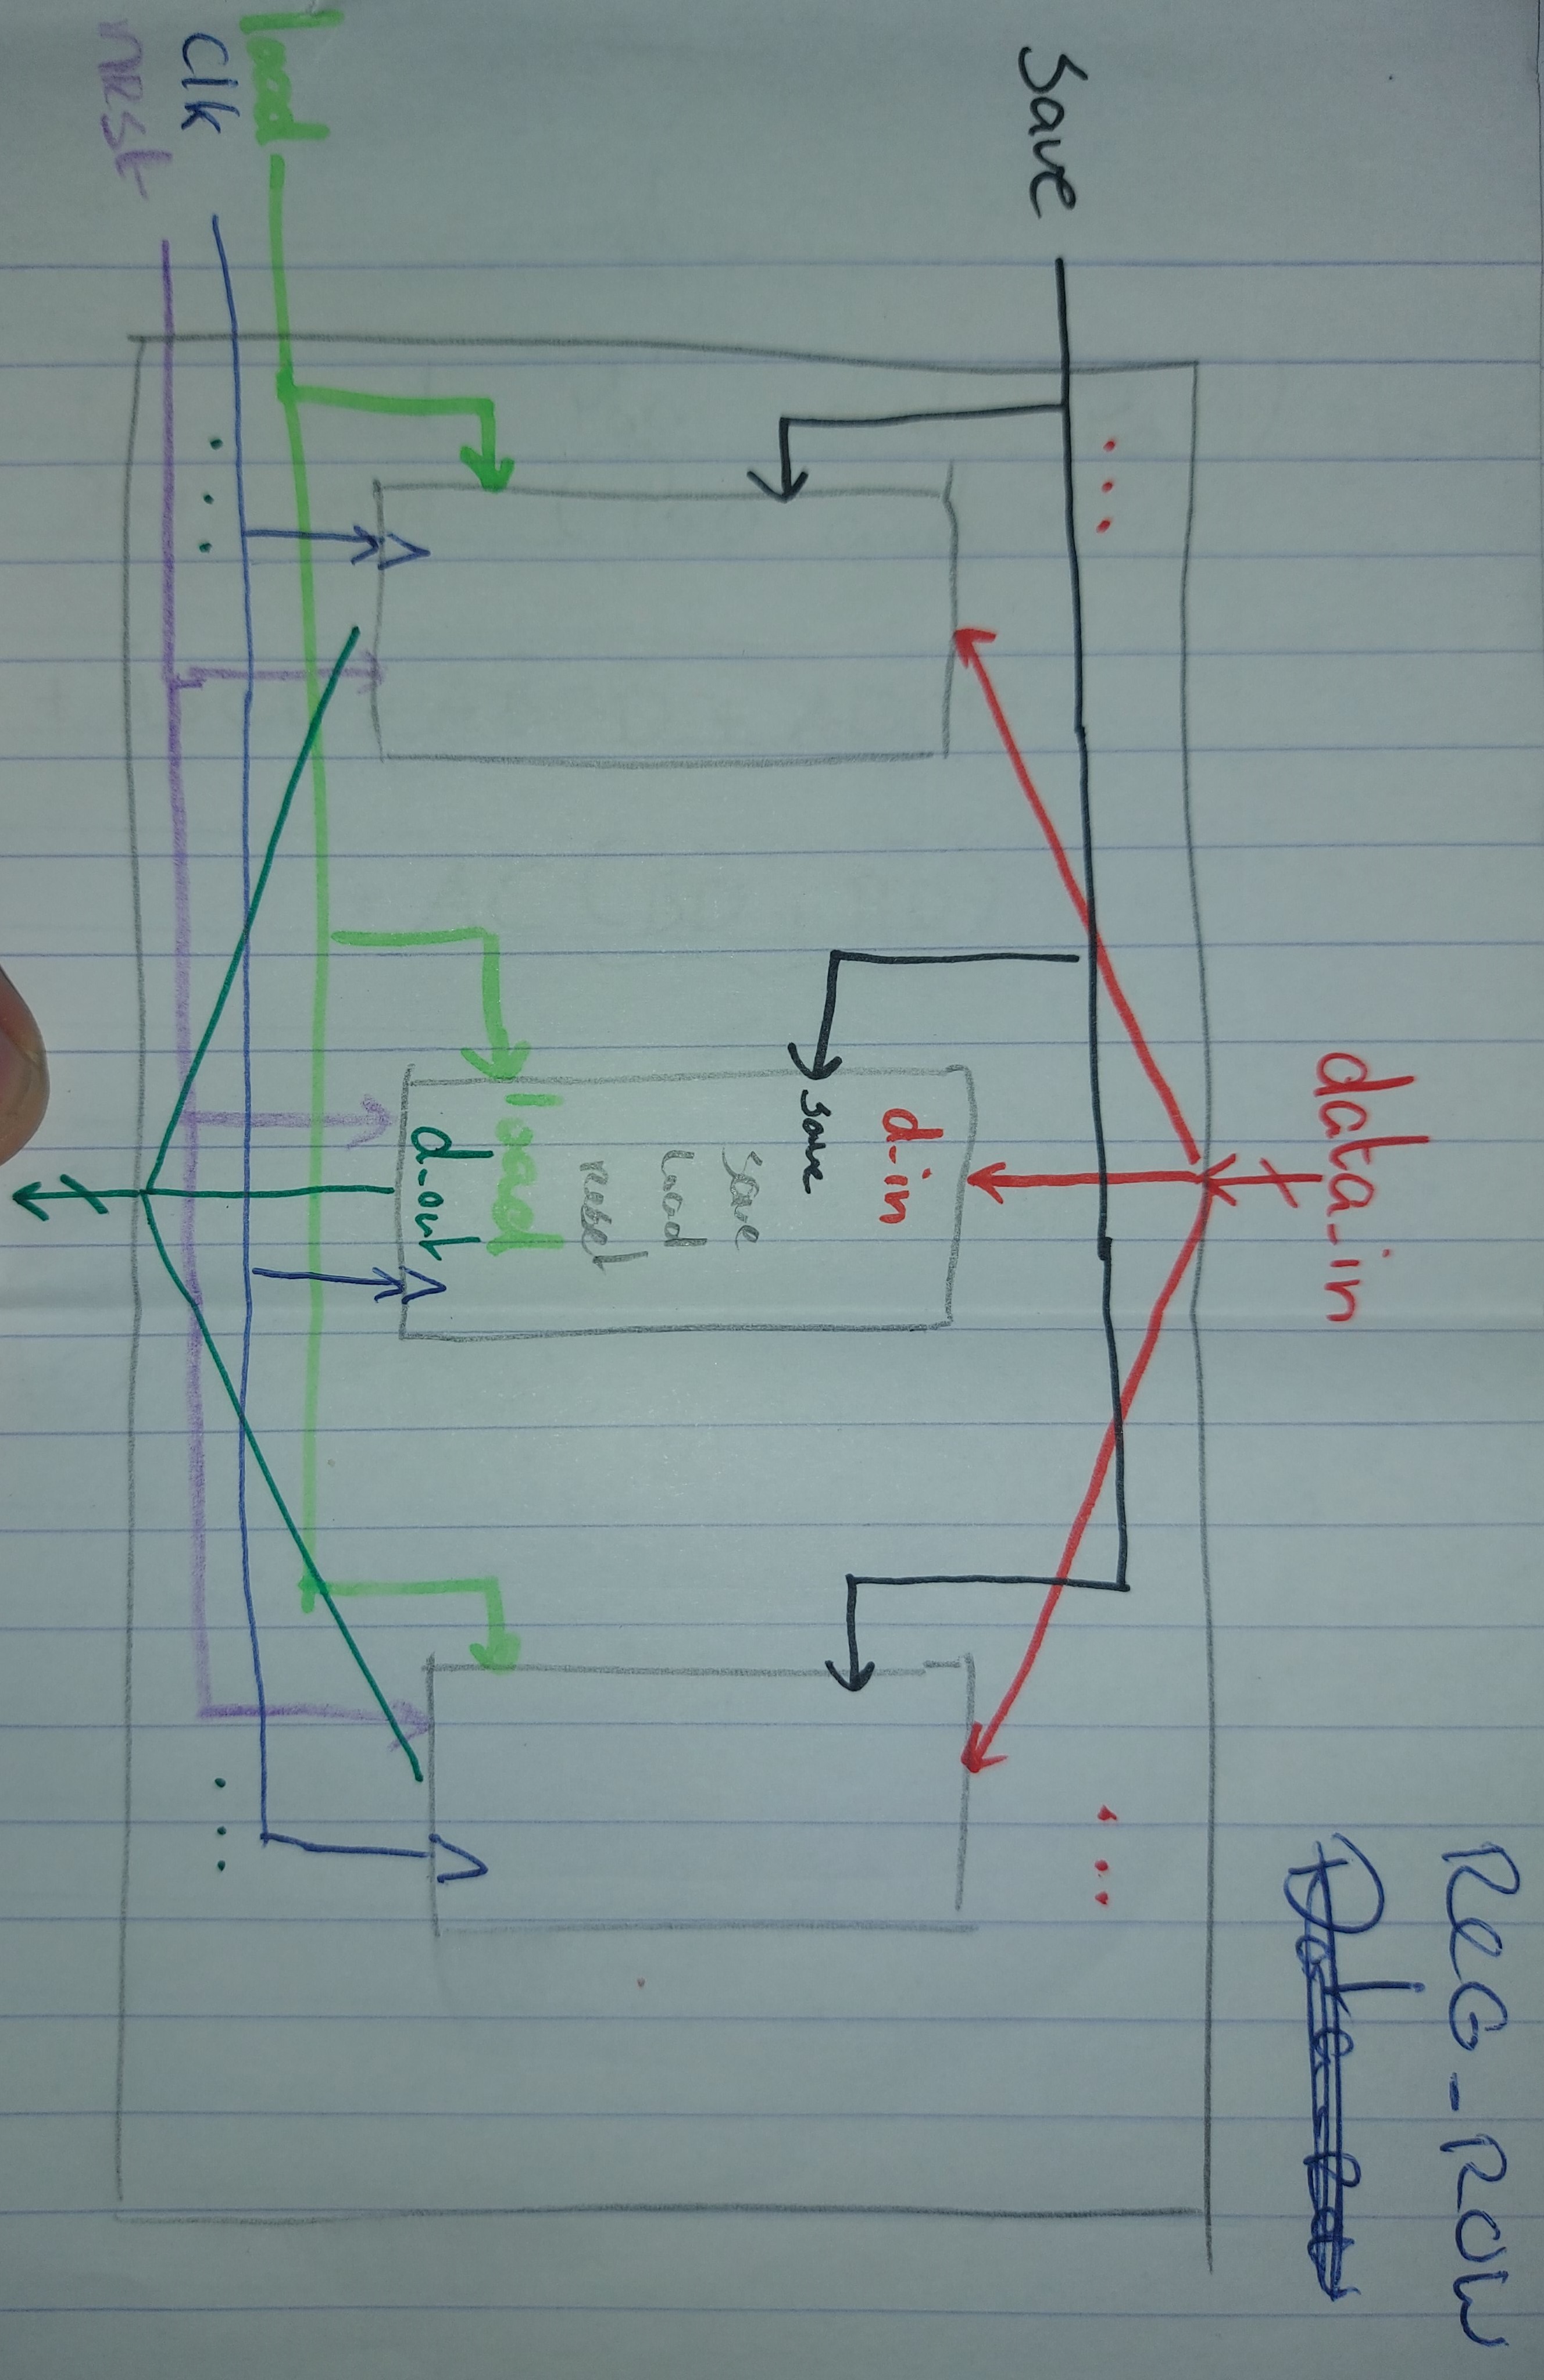 ReG_ROW
Data_Row
data_in
...
...
Save
d-in
save
save
load
reset
load
d_out
load
clk
...
...
nrst